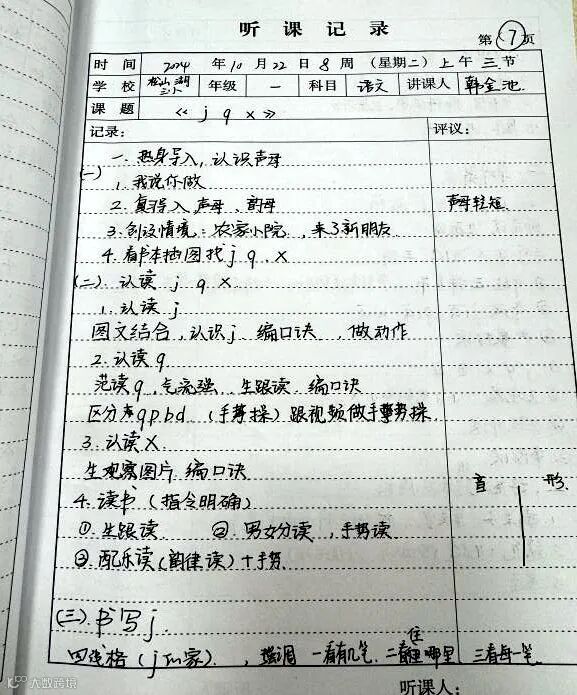 听课记录
第 7 页
时间 2024 年 10 月 22 日 8 周 (星期二) 上午 三 节
学校 松山湖三小 年级 一 科目 语文 讲课人 韩金池
课题 《j q x》
记录: 评议:
(一) 一. 热身导入, 认识声母
1. 我说你做
2. 复习导入, 声母、韵母 声母轻短
3. 创设情境: 农家小院, 来了新朋友
4. 看书本插图找 j q x
(二) 认读 j q x
1. 认读 j
图文结合, 认识 j 编口诀, 做动作
2. 认读 q
范读 q, 气流强, 生跟读 编口诀
区分 q p b d (手势操) 跟视频做手势操
3. 认读 x
生观察图片 编口诀
4. 读书 (指令明确) 音 形
① 生跟读 ② 男女分读, 手势读
③ 配乐读 (韵律读) + 手势
(三). 书写 j.
四线格 (j 的家), 强调 一看有几笔 二看住哪里 三看每一笔
听课人:
大数跨境